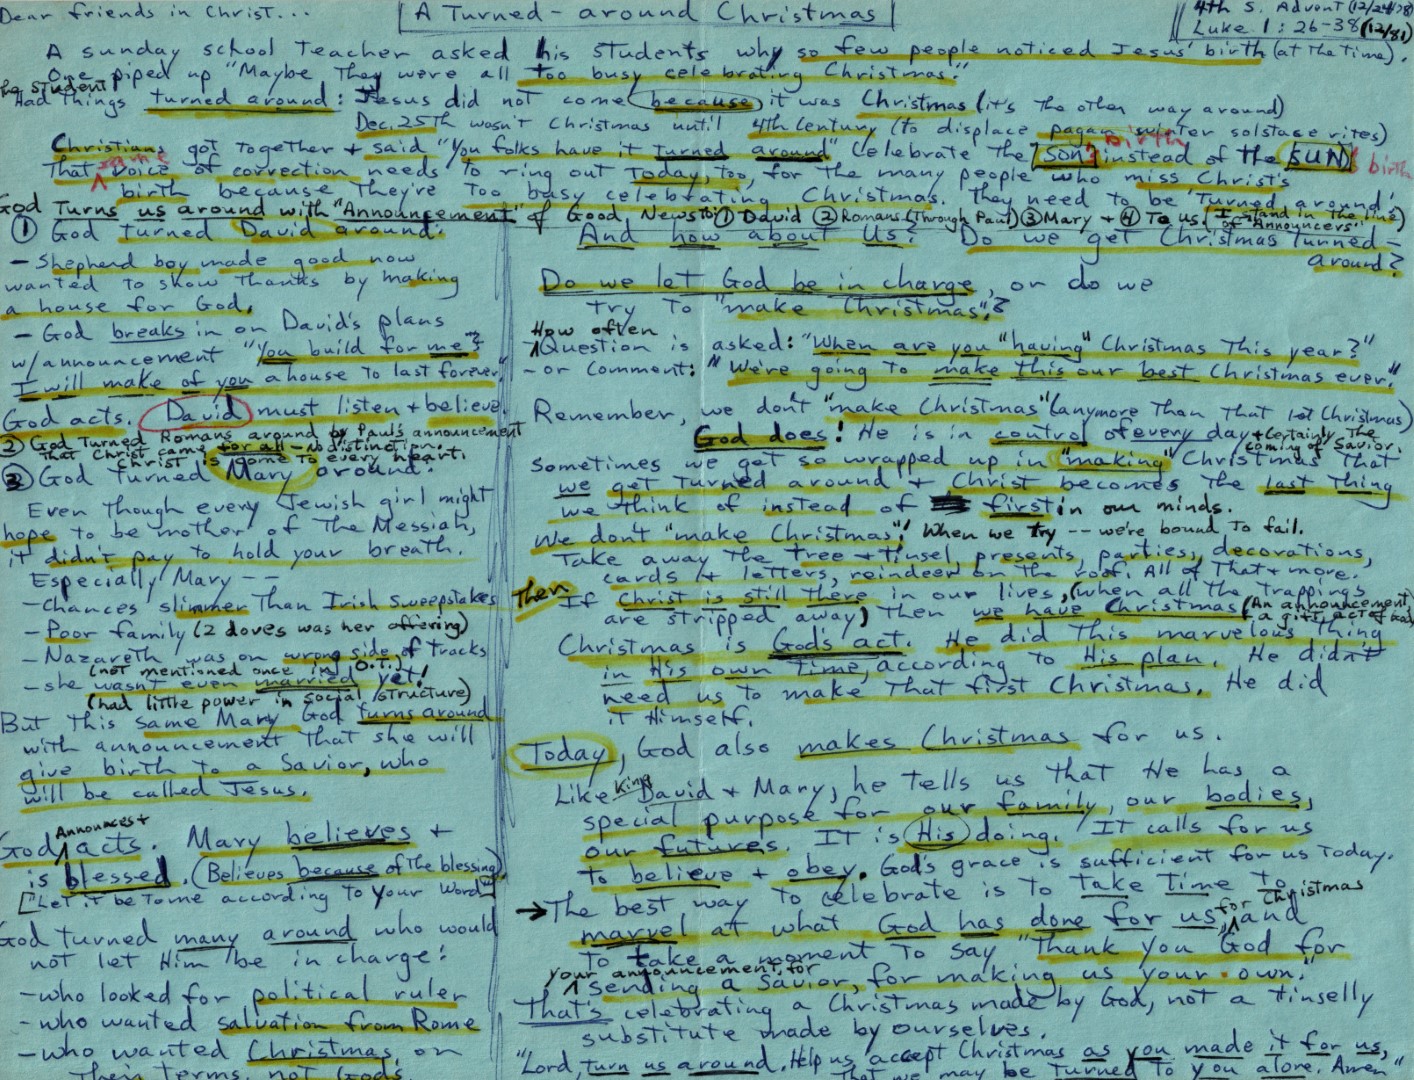 Dear friends in Christ...
A Turned-around Christmas
4th S. Advent (12/24/78)
Luke 1:26-38 (12/81)
A sunday school Teacher asked his students why so few people noticed Jesus' birth (at the Time).
One piped up "Maybe They were all too busy celebrating Christmas."
The student
Had Things turned around: Jesus did not come because it was Christmas (it's the other way around)
Dec. 25th wasn't Christmas until 4th Century (to displace pagan winter solstace rites)
Christians got together + said "You folks have it turned around" Celebrate the Son's birth instead of the SUN's birth
That same voice of correction needs to ring out Today, too, for the many people who miss Christ's
birth because they're too busy celebrating Christmas. They need to be "Turned around."
God Turns us around with "Announcement" of Good News to ① David ② Romans (Through Paul) ③ Mary + ④ To us (I stand in the line of "Announcers")
① God turned David around:
- Shepherd boy made good now
wanted to show Thanks by making
a house for God.
- God breaks in on David's plans
w/announcement "You build for me?
I will make of you a house to last forever."
God acts. David must listen + believe.
② God Turned Romans around by Paul's announcement
that Christ came for all - no distinction.
Christ is come to every heart.
③ God turned Mary around.
Even though every Jewish girl might
hope to be mother of the Messiah,
it didn't pay to hold your breath.
Especially Mary --
- Chances slimmer than Irish Sweepstakes
- Poor family (2 doves was her offering)
- Nazareth was on wrong side of tracks
(not mentioned once in O.T.)
- she wasn't even married yet!
(had little power in social structure)
But this same Mary God turns around
with announcement that she will
give birth to a Savior, who
will be called Jesus.
God Announces + acts. Mary believes +
is blessed. (Believes because of the blessing)
[Let it be to me according to your Word"]
God turned many around who would
not let Him be in charge:
- who looked for political ruler
- who wanted salvation from Rome
- who wanted Christmas on
Their terms, not God's.
And how about Us? Do we get Christmas turned-
around?
Do we let God be in charge, or do we
try to "make Christmas"?
How often Question is asked: "When are you "having" Christmas This year?"
- or Comment: "We're going to make this our best Christmas ever."
Remember, we don't "make Christmas" (anymore Than That 1st Christmas)
God does! He is in control of every day + certainly the coming of Savior.
Sometimes we get so wrapped up in "making" Christmas that
we get turned around + Christ becomes the last Thing
we think of instead of first in our minds.
We don't "make Christmas"! When we try -- we're bound to fail.
Take away the tree + tinsel, presents, parties, decorations,
cards + letters, reindeer on the roof. All of that + more.
Then If Christ is still there in our lives, (when all the trappings
are stripped away) Then we have Christmas (An announcement, a gift, act of God)
Christmas is God's act. He did this marvelous thing
in His own Time, according to His plan. He didn't
need us to make That first Christmas. He did
it Himself.
Today, God also makes Christmas for us.
Like King David + Mary, he tells us that He has a
special purpose for our family, our bodies,
our futures. It is His doing. It calls for us
to believe + obey. God's grace is sufficient for us Today.
→ The best way to celebrate is to take time to
marvel at what God has done for us, for Christmas and
to take a moment to say "Thank you God for
your announcement, for sending a Savior, for making us your own."
That's celebrating a Christmas made by God, not a tinselly
substitute made by ourselves.
"Lord, turn us around. Help us accept Christmas as you made it for us,
That we may be turned to you alone. Amen"